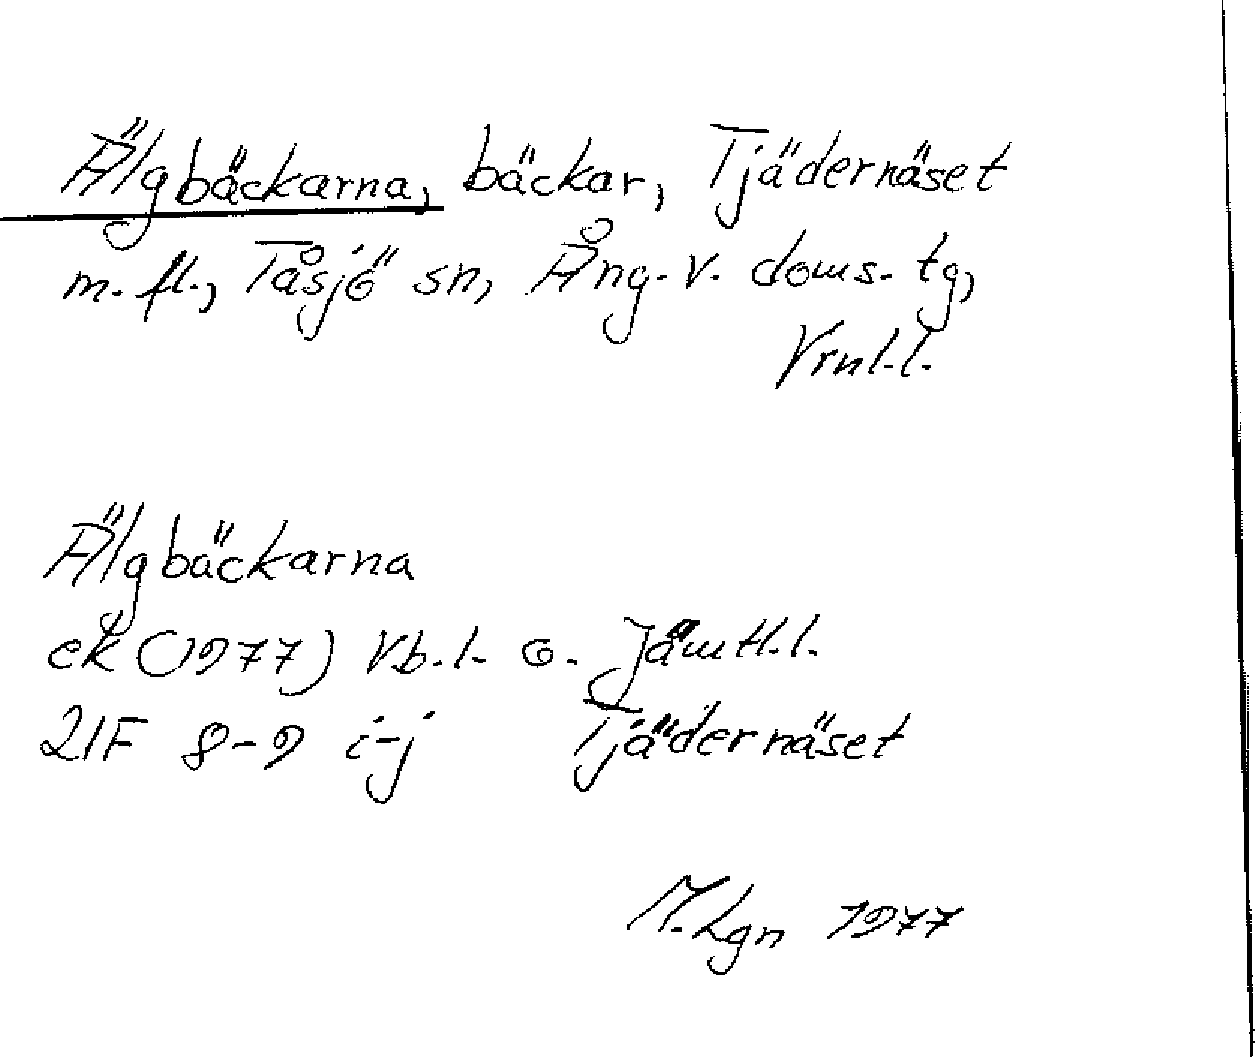 Älgbäckarna, bäckar, Tjädernäset
m. fl., Tåsjö sn, Ång. v. doms. tg,
Vrnl.l.
Älgbäckarna
ek (1977) Vb.l. o. Jämtl.l.
21F 8-9 i-j Tjädernäset
M. Lgn 1977